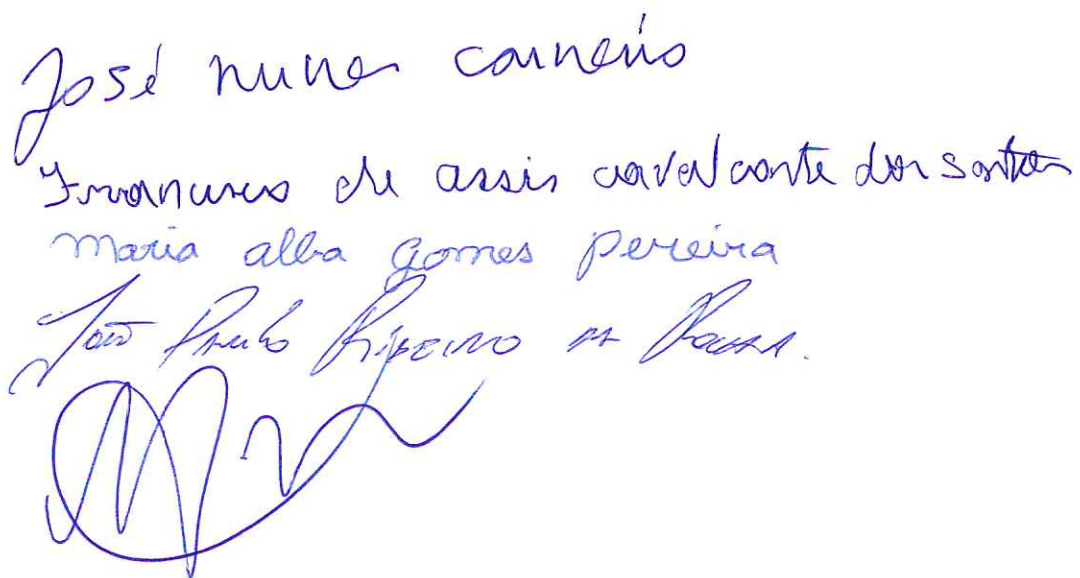 José nunes carneiro
Francisco de assis cavalcante dos santos
maria alba gomes pereira
João Paulo Ribeiro da